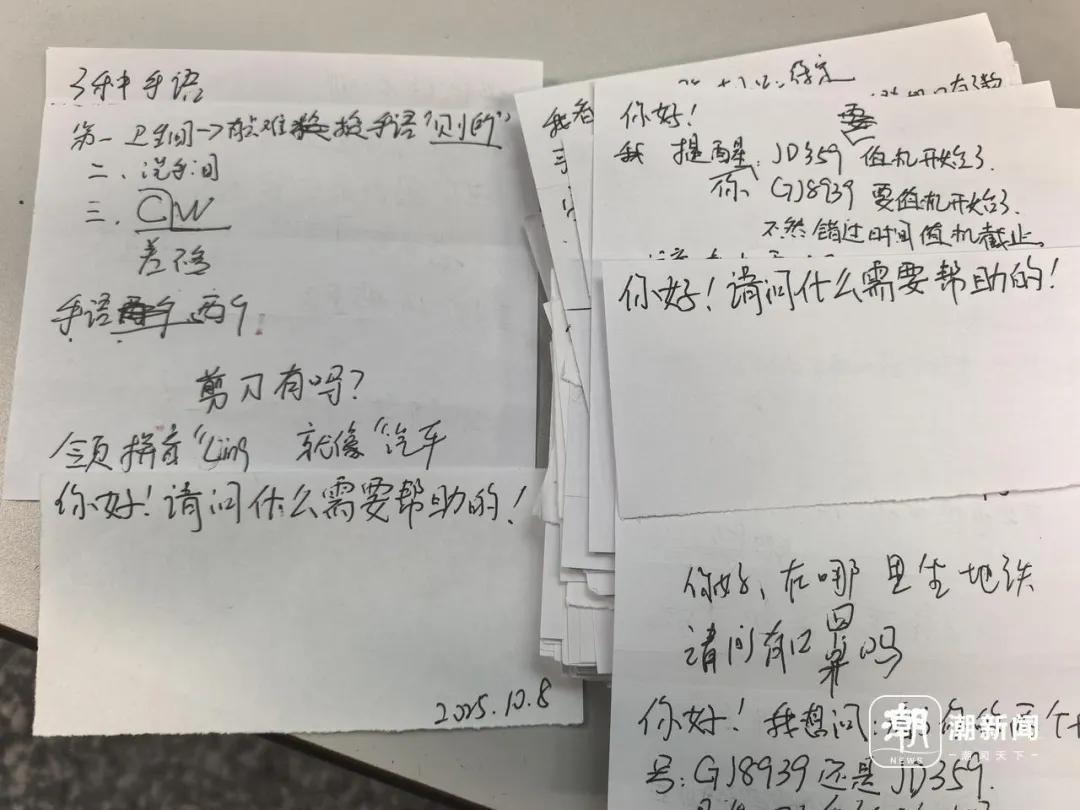 3种手语
第一 卫生间→有点难 换手语"厕所"
二、洗手间
三、CW
差不多
手语 两个
剪刀有吗?
领拼音"Ling 就像"汽车
你好!请问什么需要帮助的!
2025.10.8
你好!
我 提醒 JD359 值机开始了
你 GJ8939 要值机开始了.
不然错过时间值机截止。
你好!请问什么需要帮助的!
你好、在哪里坐地铁
请问有口罩吗
你好!我想问:
号:GJ8939还是JD359.
潮 潮新闻
NEWS 潮闻天下